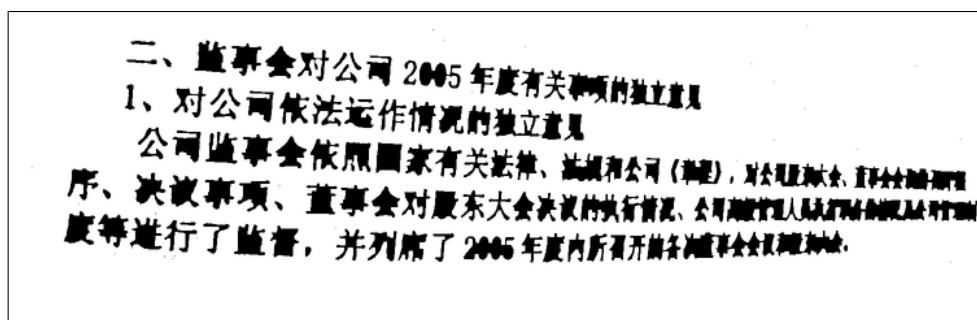 二、监事会对公司 2005 年度有关事项的独立意见
1、对公司依法运作情况的独立意见
公司监事会依照国家有关法律、法规和公司《章程》，对公司股东大会、董事会
序、决议事项、董事会对股东大会决议的执行情况、公司高级管理人员
度等进行了监督，并列席了 2005 年度内所召开的各次董事会会议和股东大会。